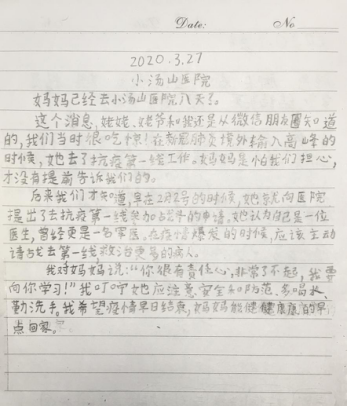 Date: No
2020.3.27
小汤山医院
妈妈已经去小汤山医院八天了。
这个消息，姥姥、姥爷和我还是从微信朋友圈知道
的，我们当时很吃惊！在新冠肺炎境外输入高峰的
时候，她去了抗疫第一线工作。妈妈是怕我们担心，
才没有提前告诉我们的。
后来我们才知道，早在2月2号的时候，她就向医院
提出了去抗疫第一线参加战斗的申请。她认为自己是一位
医生，曾经更是一名军医。在疫情爆发的时候，应该主动
请战去第一线救治更多的病人。
我对妈妈说：“你很有责任心，非常了不起，我要
向你学习！”我叮咛她应注意安全和防范、多喝水、
勤洗手。我希望疫情早日结束，妈妈能健健康康的早
点回家。